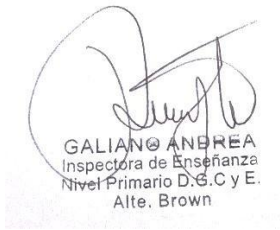 GALIANO ANDREA
Inspectora de Enseñanza
Nivel Primario D.G.C y E.
Alte. Brown